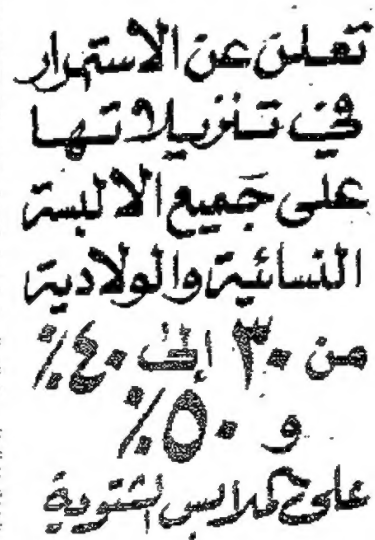 تعلن عن الاستمرار
في تنزيلاتها
على جميع الالبسة
النسائية والولادية
من ٣٠ إلى ٤٠٪
و ٥٠٪
على الملابس الشتوية